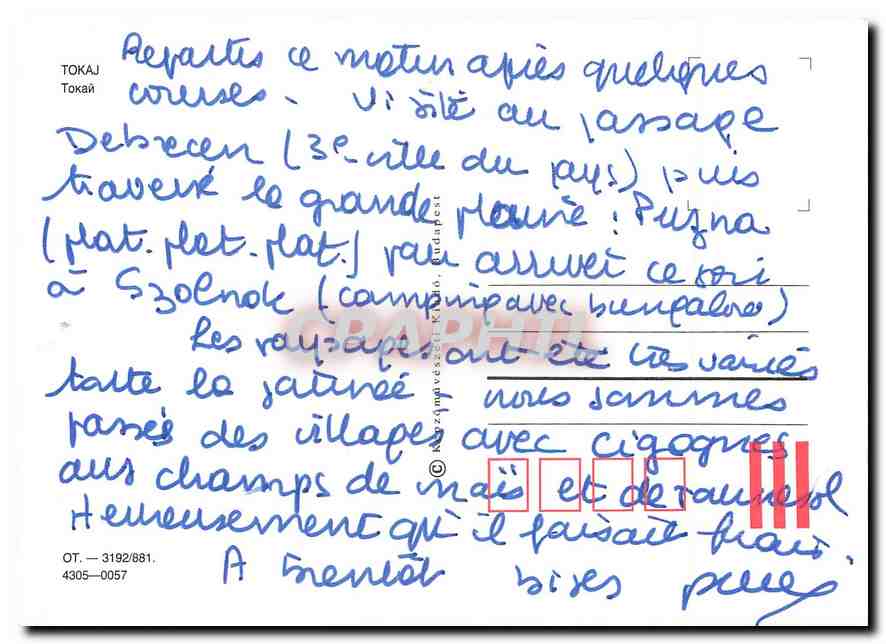 TOKAJ
Токай
Reparties ce matin après quelques
courses - Visité au passage
Debrecen (3e ville du pays) puis
traversé la grande plaine : Puszna
(plat. plat. plat.) pour arriver ce soir
à Szolnok (camping avec bungalow)
Les paysages ont été très variés
toute la journée - nous sommes
passés des villages avec cigognes
aux champs de maïs et de tournesol
Heureusement qu'il faisait frais.
A bientôt bises
© Képzőművészeti Kiadó, Budapest
OT. — 3192/881.
4305—0057
CPAPHIL